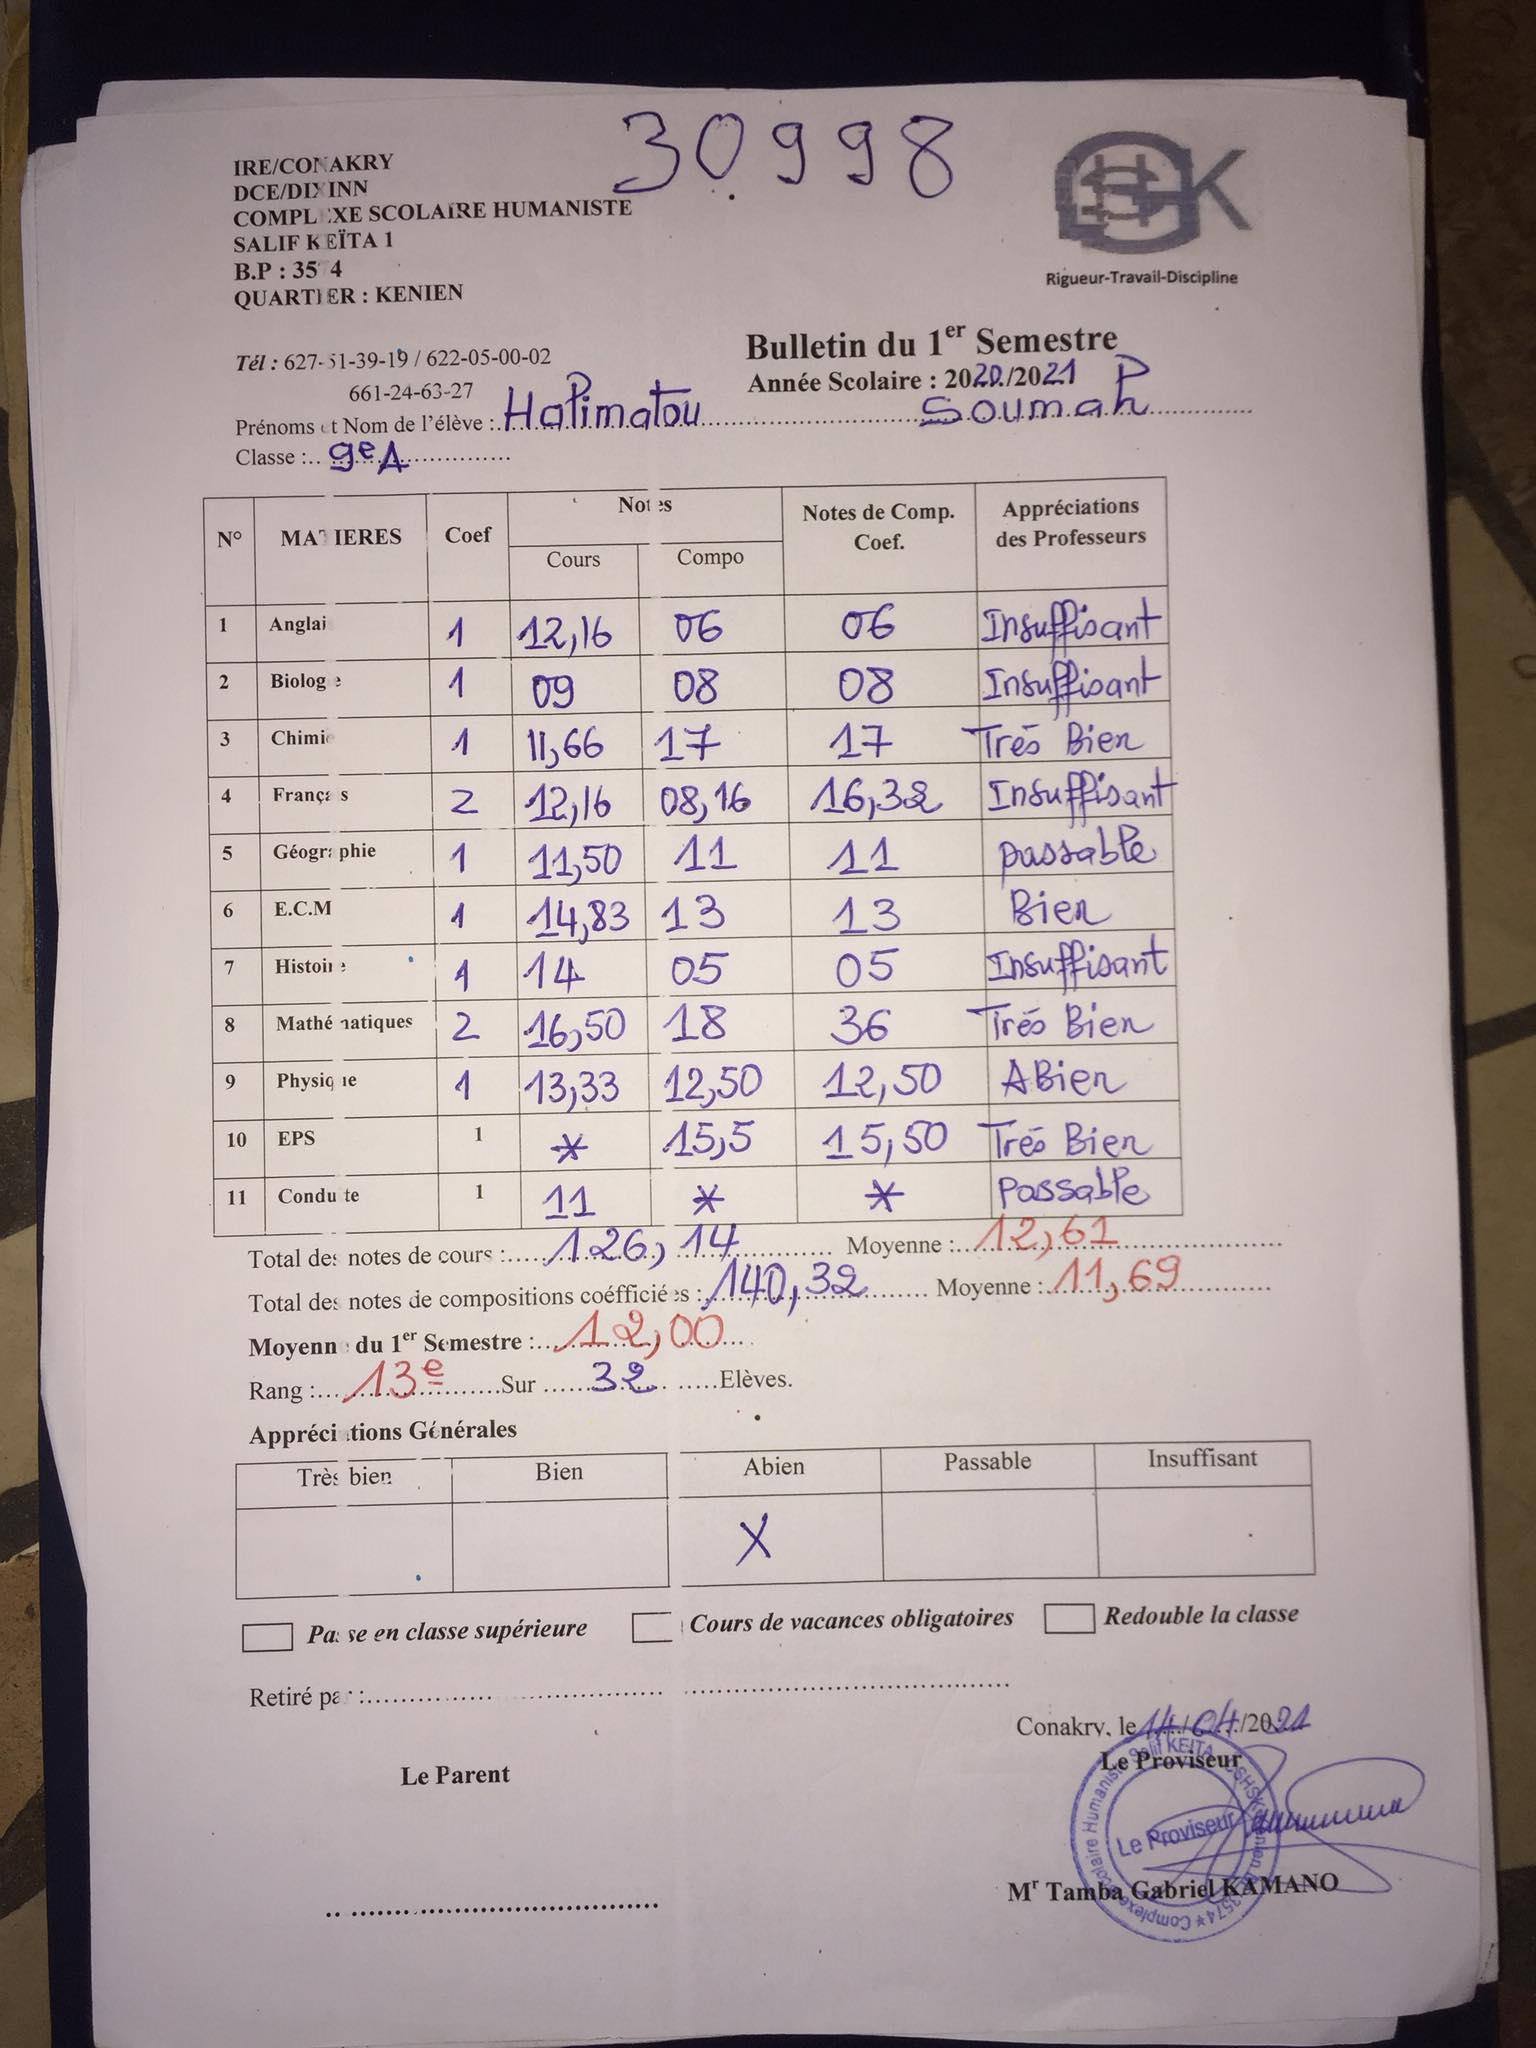 30998
IRE/CONAKRY
DCE/DIXINN
COMPLEXE SCOLAIRE HUMANISTE
SALIF KEÏTA 1
B.P : 3574
QUARTIER : KENIEN
CSHSK
Rigueur-Travail-Discipline
Tél : 627-51-39-19 / 622-05-00-02
661-24-63-27
Bulletin du 1er Semestre
Année Scolaire : 2020/2021
Prénoms et Nom de l'élève : Halimatou Soumah P
Classe : 9e A
N° MATIERES Coef Notes Notes de Comp. Coef. Appréciations des Professeurs
Cours Compo
1 Anglais 1 12,16 06 06 Insuffisant
2 Biologie 1 09 08 08 Insuffisant
3 Chimie 1 11,66 17 17 Trés Bien
4 Français 2 12,16 08,16 16,32 Insuffisant
5 Géographie 1 11,50 11 11 passable
6 E.C.M 1 14,83 13 13 Bien
7 Histoire 1 14 05 05 Insuffisant
8 Mathématiques 2 16,50 18 36 Trés Bien
9 Physique 1 13,33 12,50 12,50 ABien
10 EPS 1 * 15,5 15,50 Trés Bien
11 Conduite 1 11 * * Passable
Total des notes de cours : 126,14 Moyenne : 12,61
Total des notes de compositions coéfficiées : 140,32 Moyenne : 11,69
Moyenne du 1er Semestre : 12,00
Rang : 13e Sur 32 Elèves.
Appréciations Générales
Très bien Bien Abien Passable Insuffisant
X
Passe en classe supérieure Cours de vacances obligatoires Redouble la classe
Retiré par :
Conakry, le 14/04/2021
Le Parent Le Proviseur
Le Proviseur
Complexe Scolaire Humaniste Salif KEITA
Mr Tamba Gabriel KAMANO